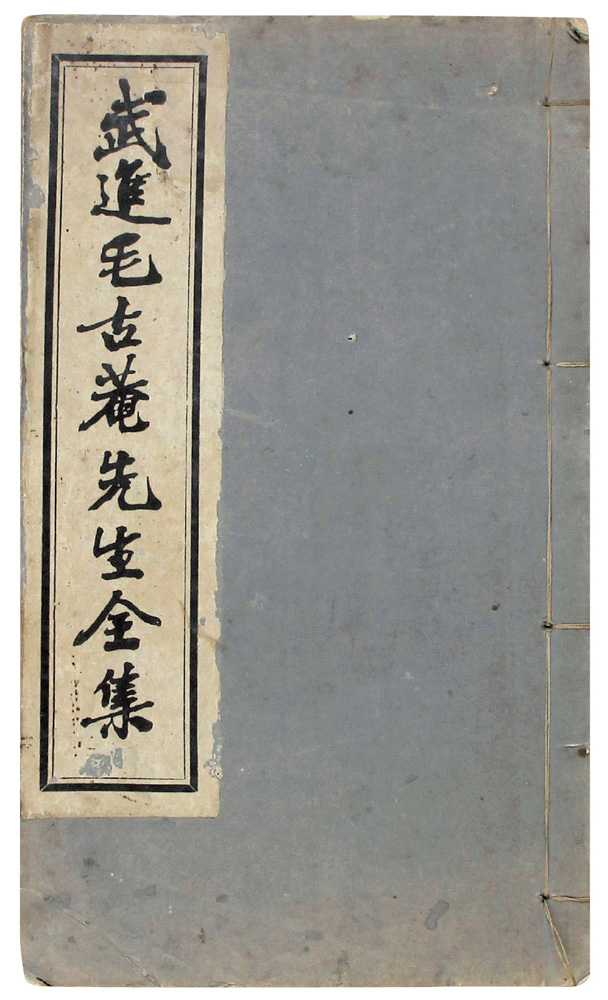 武進毛古菴先生全集